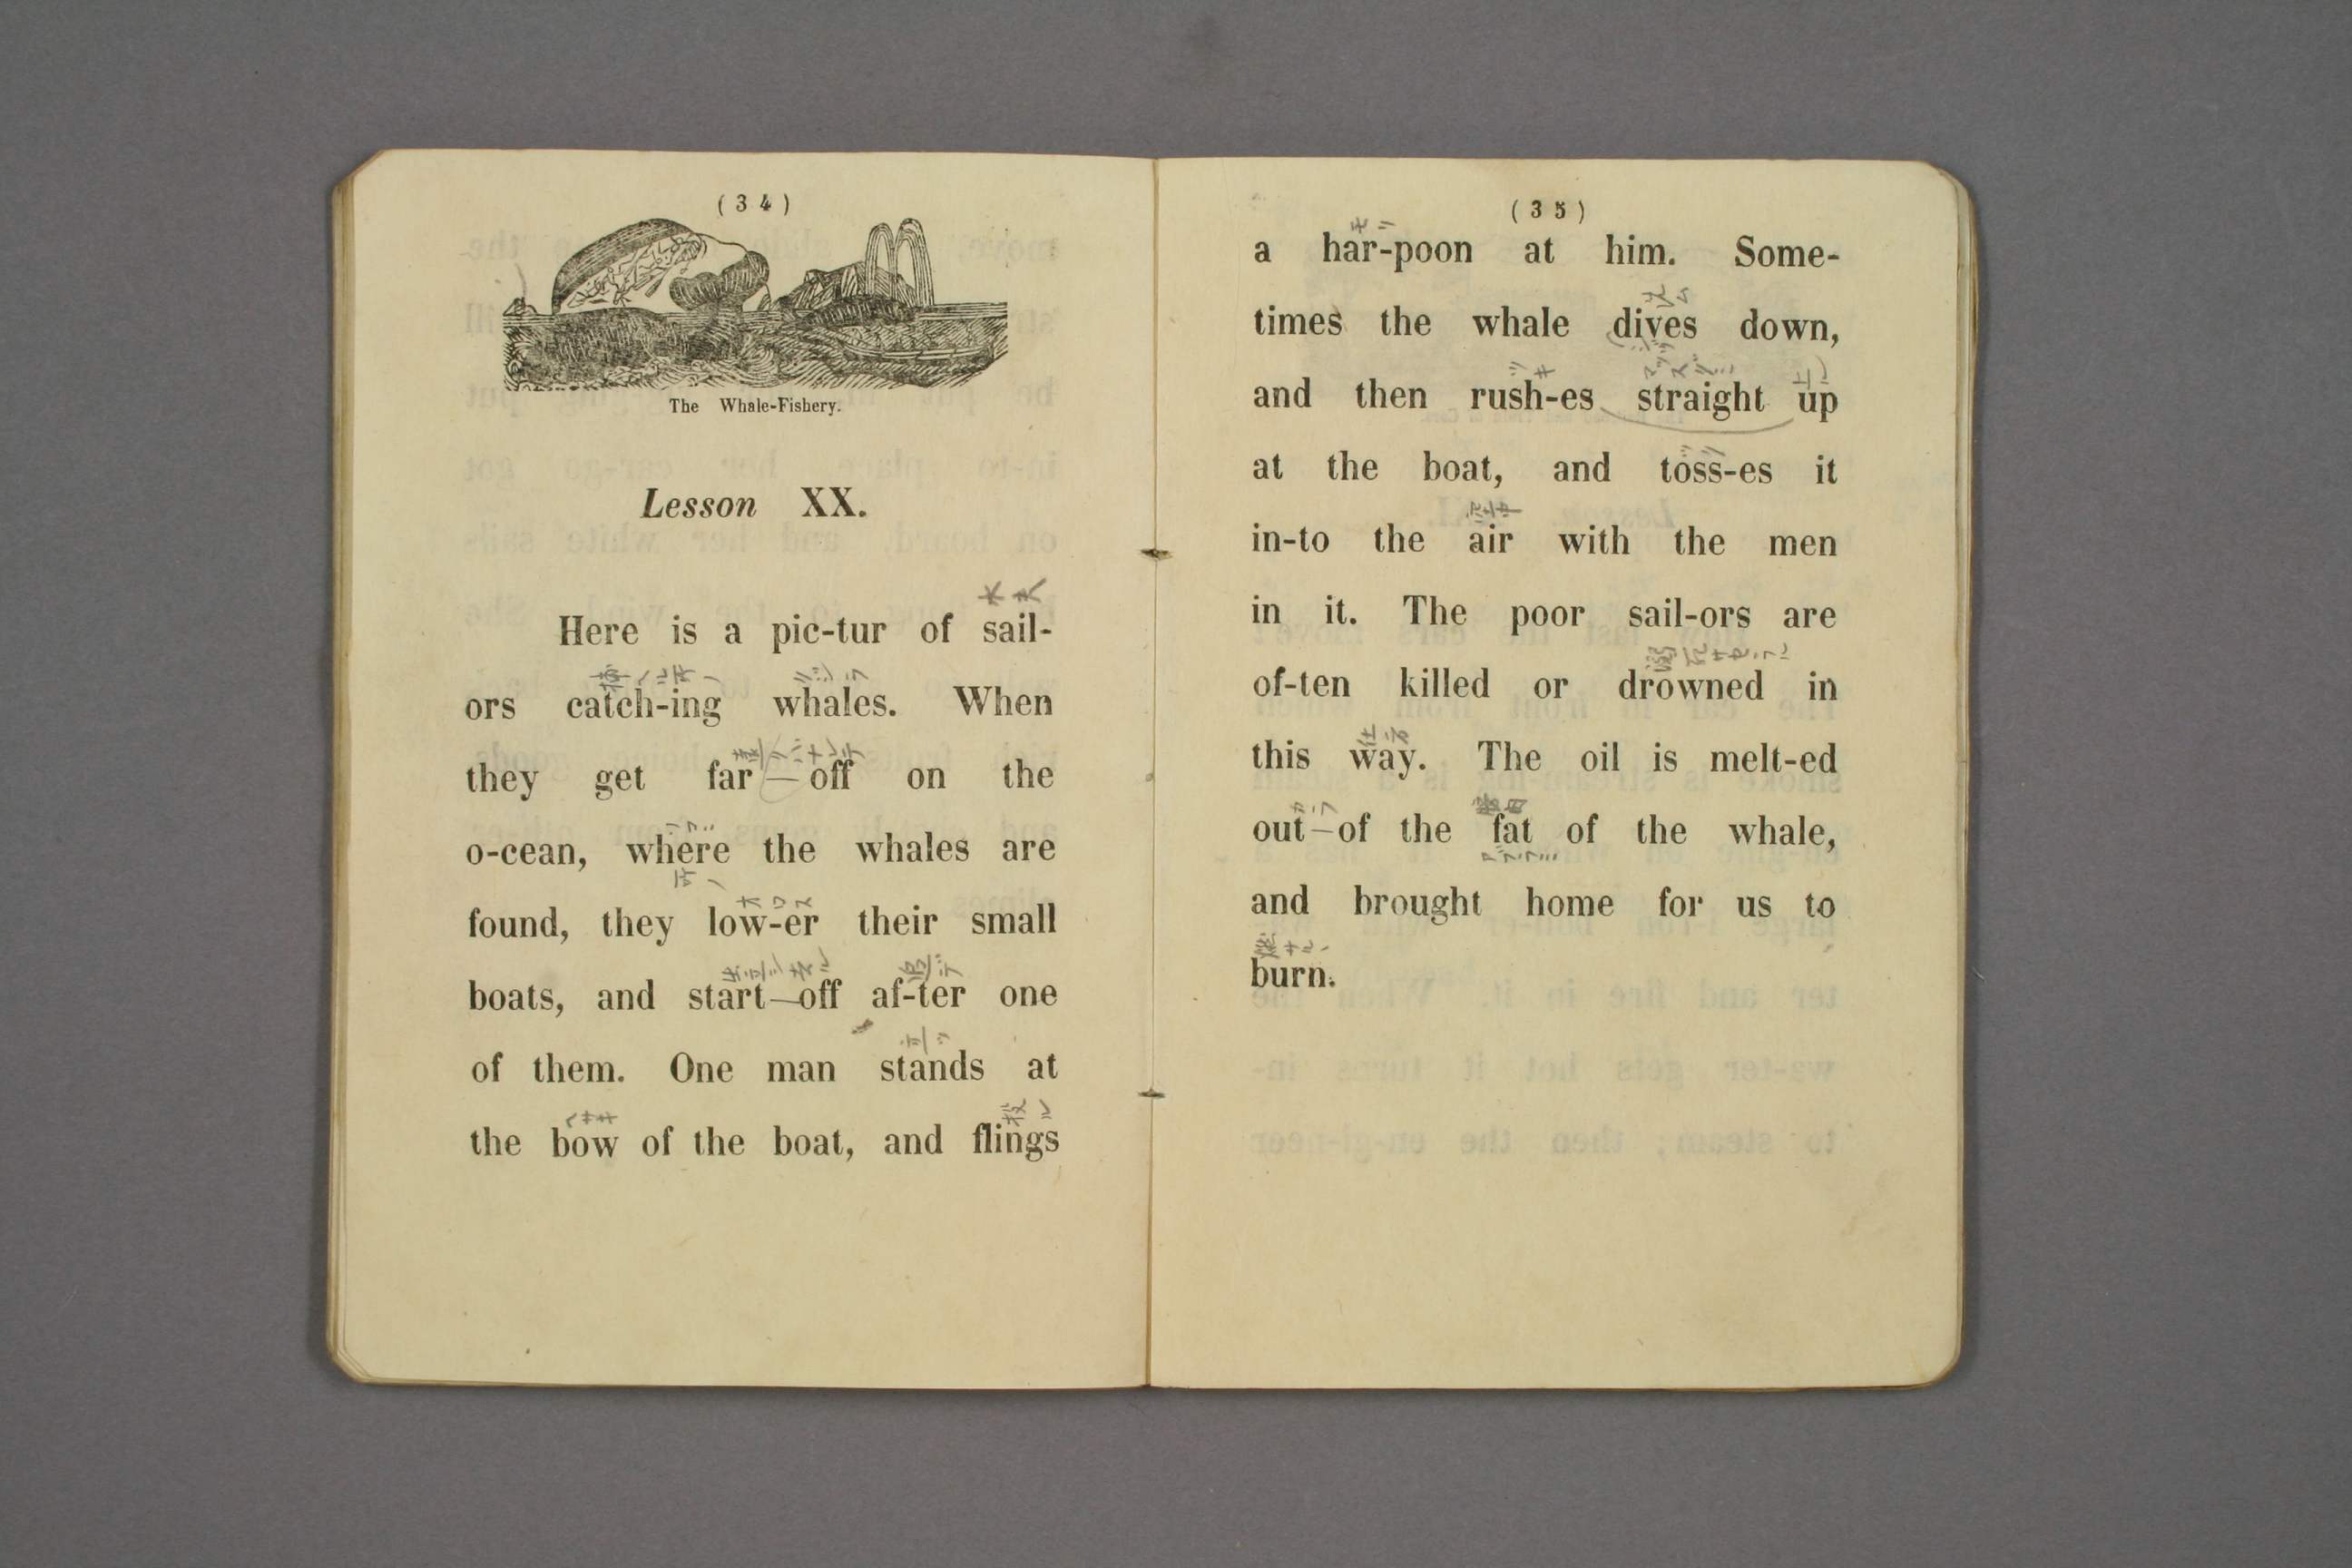 (34)
The Whale-Fishery.
Lesson XX.
Here is a pic-tur of sail-
ors catch-ing whales. When
they get far off on the
o-cean, where the whales are
found, they low-er their small
boats, and start off af-ter one
of them. One man stands at
the bow of the boat, and flings
(35)
a har-poon at him. Some-
times the whale dives down,
and then rush-es straight up
at the boat, and toss-es it
in-to the air with the men
in it. The poor sail-ors are
of-ten killed or drowned in
this way. The oil is melt-ed
out of the fat of the whale,
and brought home for us to
burn.